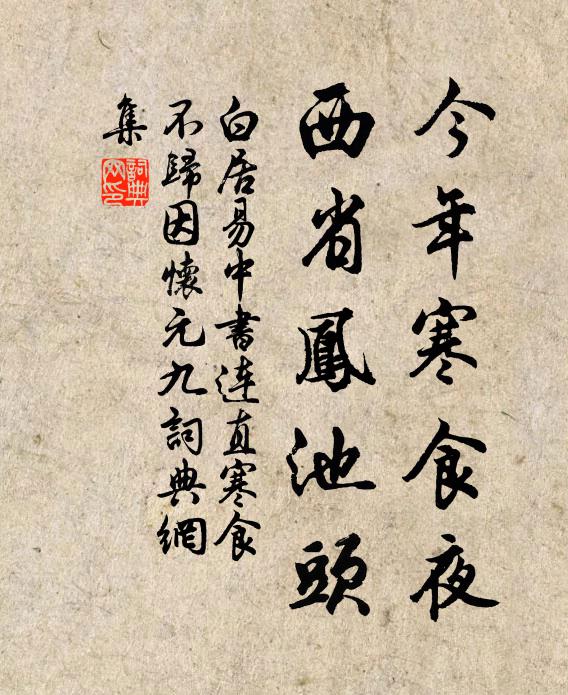 今年寒食夜
西省鳳池頭
白居易中書連直寒食
不歸因懷元九詞典網
集
詞典網印